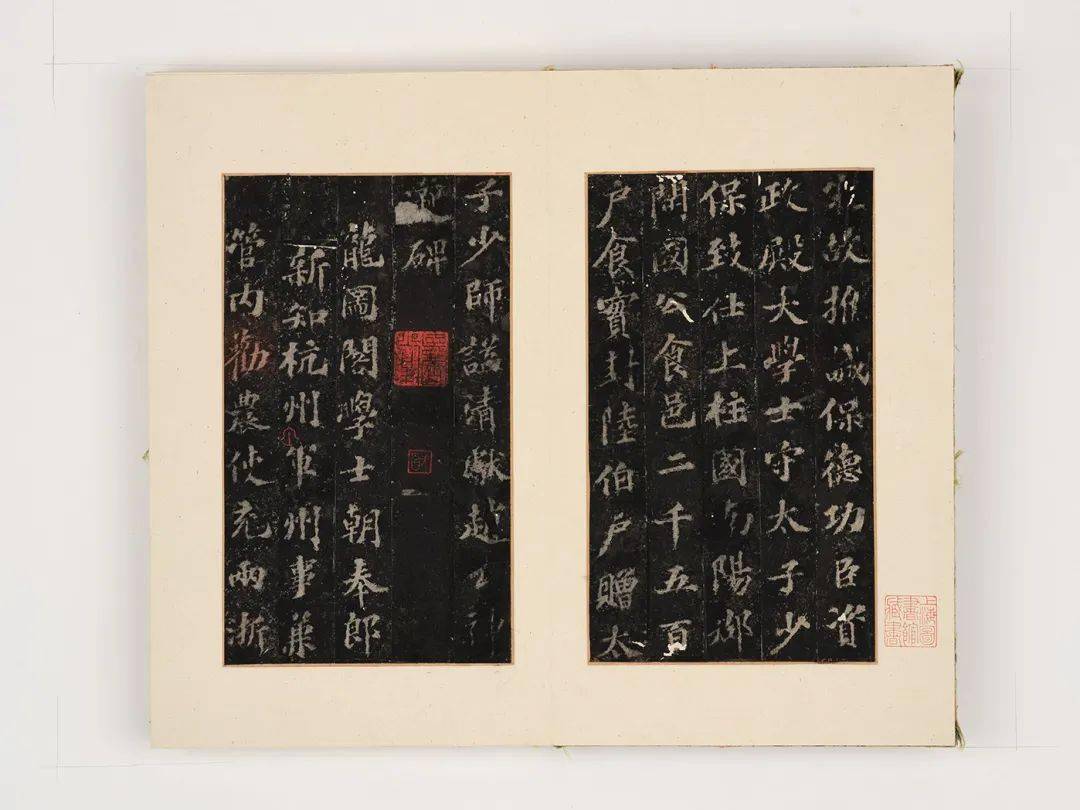 宋故推誠保德功臣資
政殿大學士守太子少
保致仕上柱國南陽郡
開國公食邑二千五百
户食實封陸伯户贈太
子少師謚清獻趙公神
道碑
龍圖閣學士朝奉郎
新知杭州軍州事兼
管内勸農使充兩浙
上海圖
書館
藏書